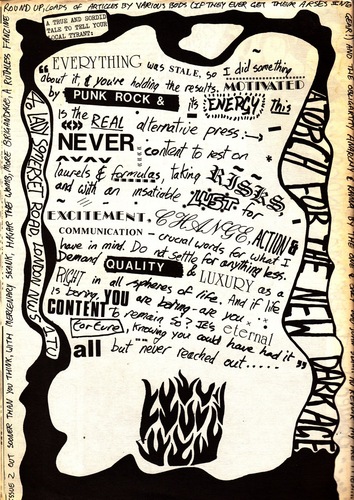 ROUND UP, LOADS OF ARTICLES BY VARIOUS BODS (IF THEY EVER GET THEIR ARSES IN
A TRUE AND SORDID
TALE TO TELL YOUR
LOCAL TYRANT:
"EVERYTHING was STALE, so I did something
about it, & you're holding the results. MOTIVATED
by PUNK ROCK & its ENERGY this
is the REAL alternative press:
NEVER content to rest on
laurels & formulas, taking RISKS,
and with an insatiable LUST for
EXCITEMENT, CHANGE, ACTION &
COMMUNICATION – crucial words for what I
have in mind. Do not settle for anything less.
Demand QUALITY & LUXURY as a
RIGHT in all spheres of life. And if life
is boring, YOU are boring – are you
CONTENT to remain so? It's eternal
torture, knowing you could have had it
all but never reached out....."
A TORCH FOR THE NEW DARK AGE
LADY SOMERSET ROAD LONDON NW5 1TU
ISSUE 2 OUT SOONER THAN YOU THINK, WITH MERCENARY SKANK, HAGAR THE WOMB, MORE BRIGANDAGE, A RUTHLESS FANZINE